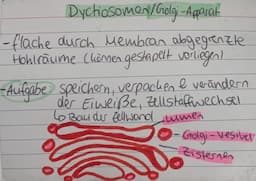 Dyctiosomen/Golgi-Apparat
-flache durch Membran abgegrenzte
Hohlräume (können gestapelt vorliegen)
-Aufgabe speichern, verpacken & verändern
der Eiweiße, Zellstoffwechsel
↳ Bau der Zellwand
Lumen
Golgi-Vesikel
Zisternen